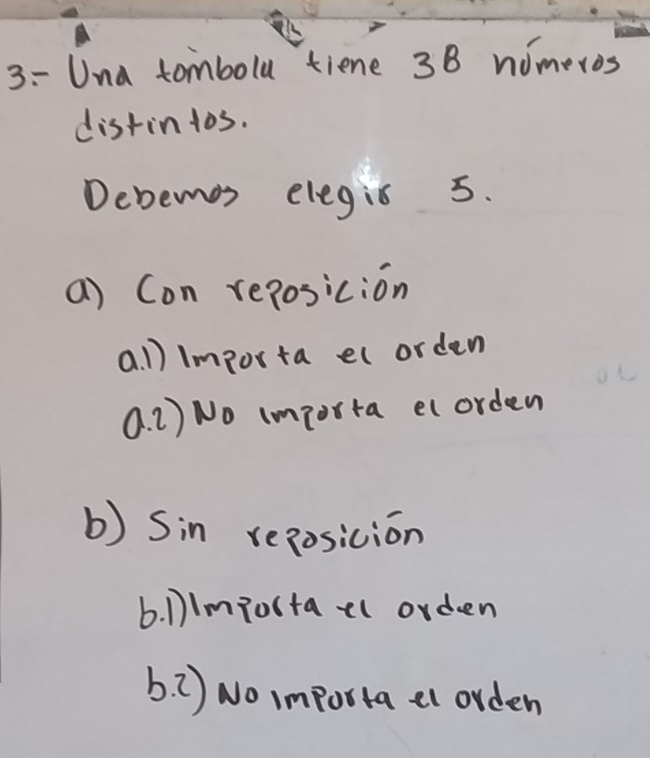 3.- Una tómbola tiene 38 números
distintos.
Debemos elegir 5.
a) Con reposición
a.1) Importa el orden
a.2) No importa el orden
b) Sin reposición
b.1) Importa el orden
b.2) No importa el orden